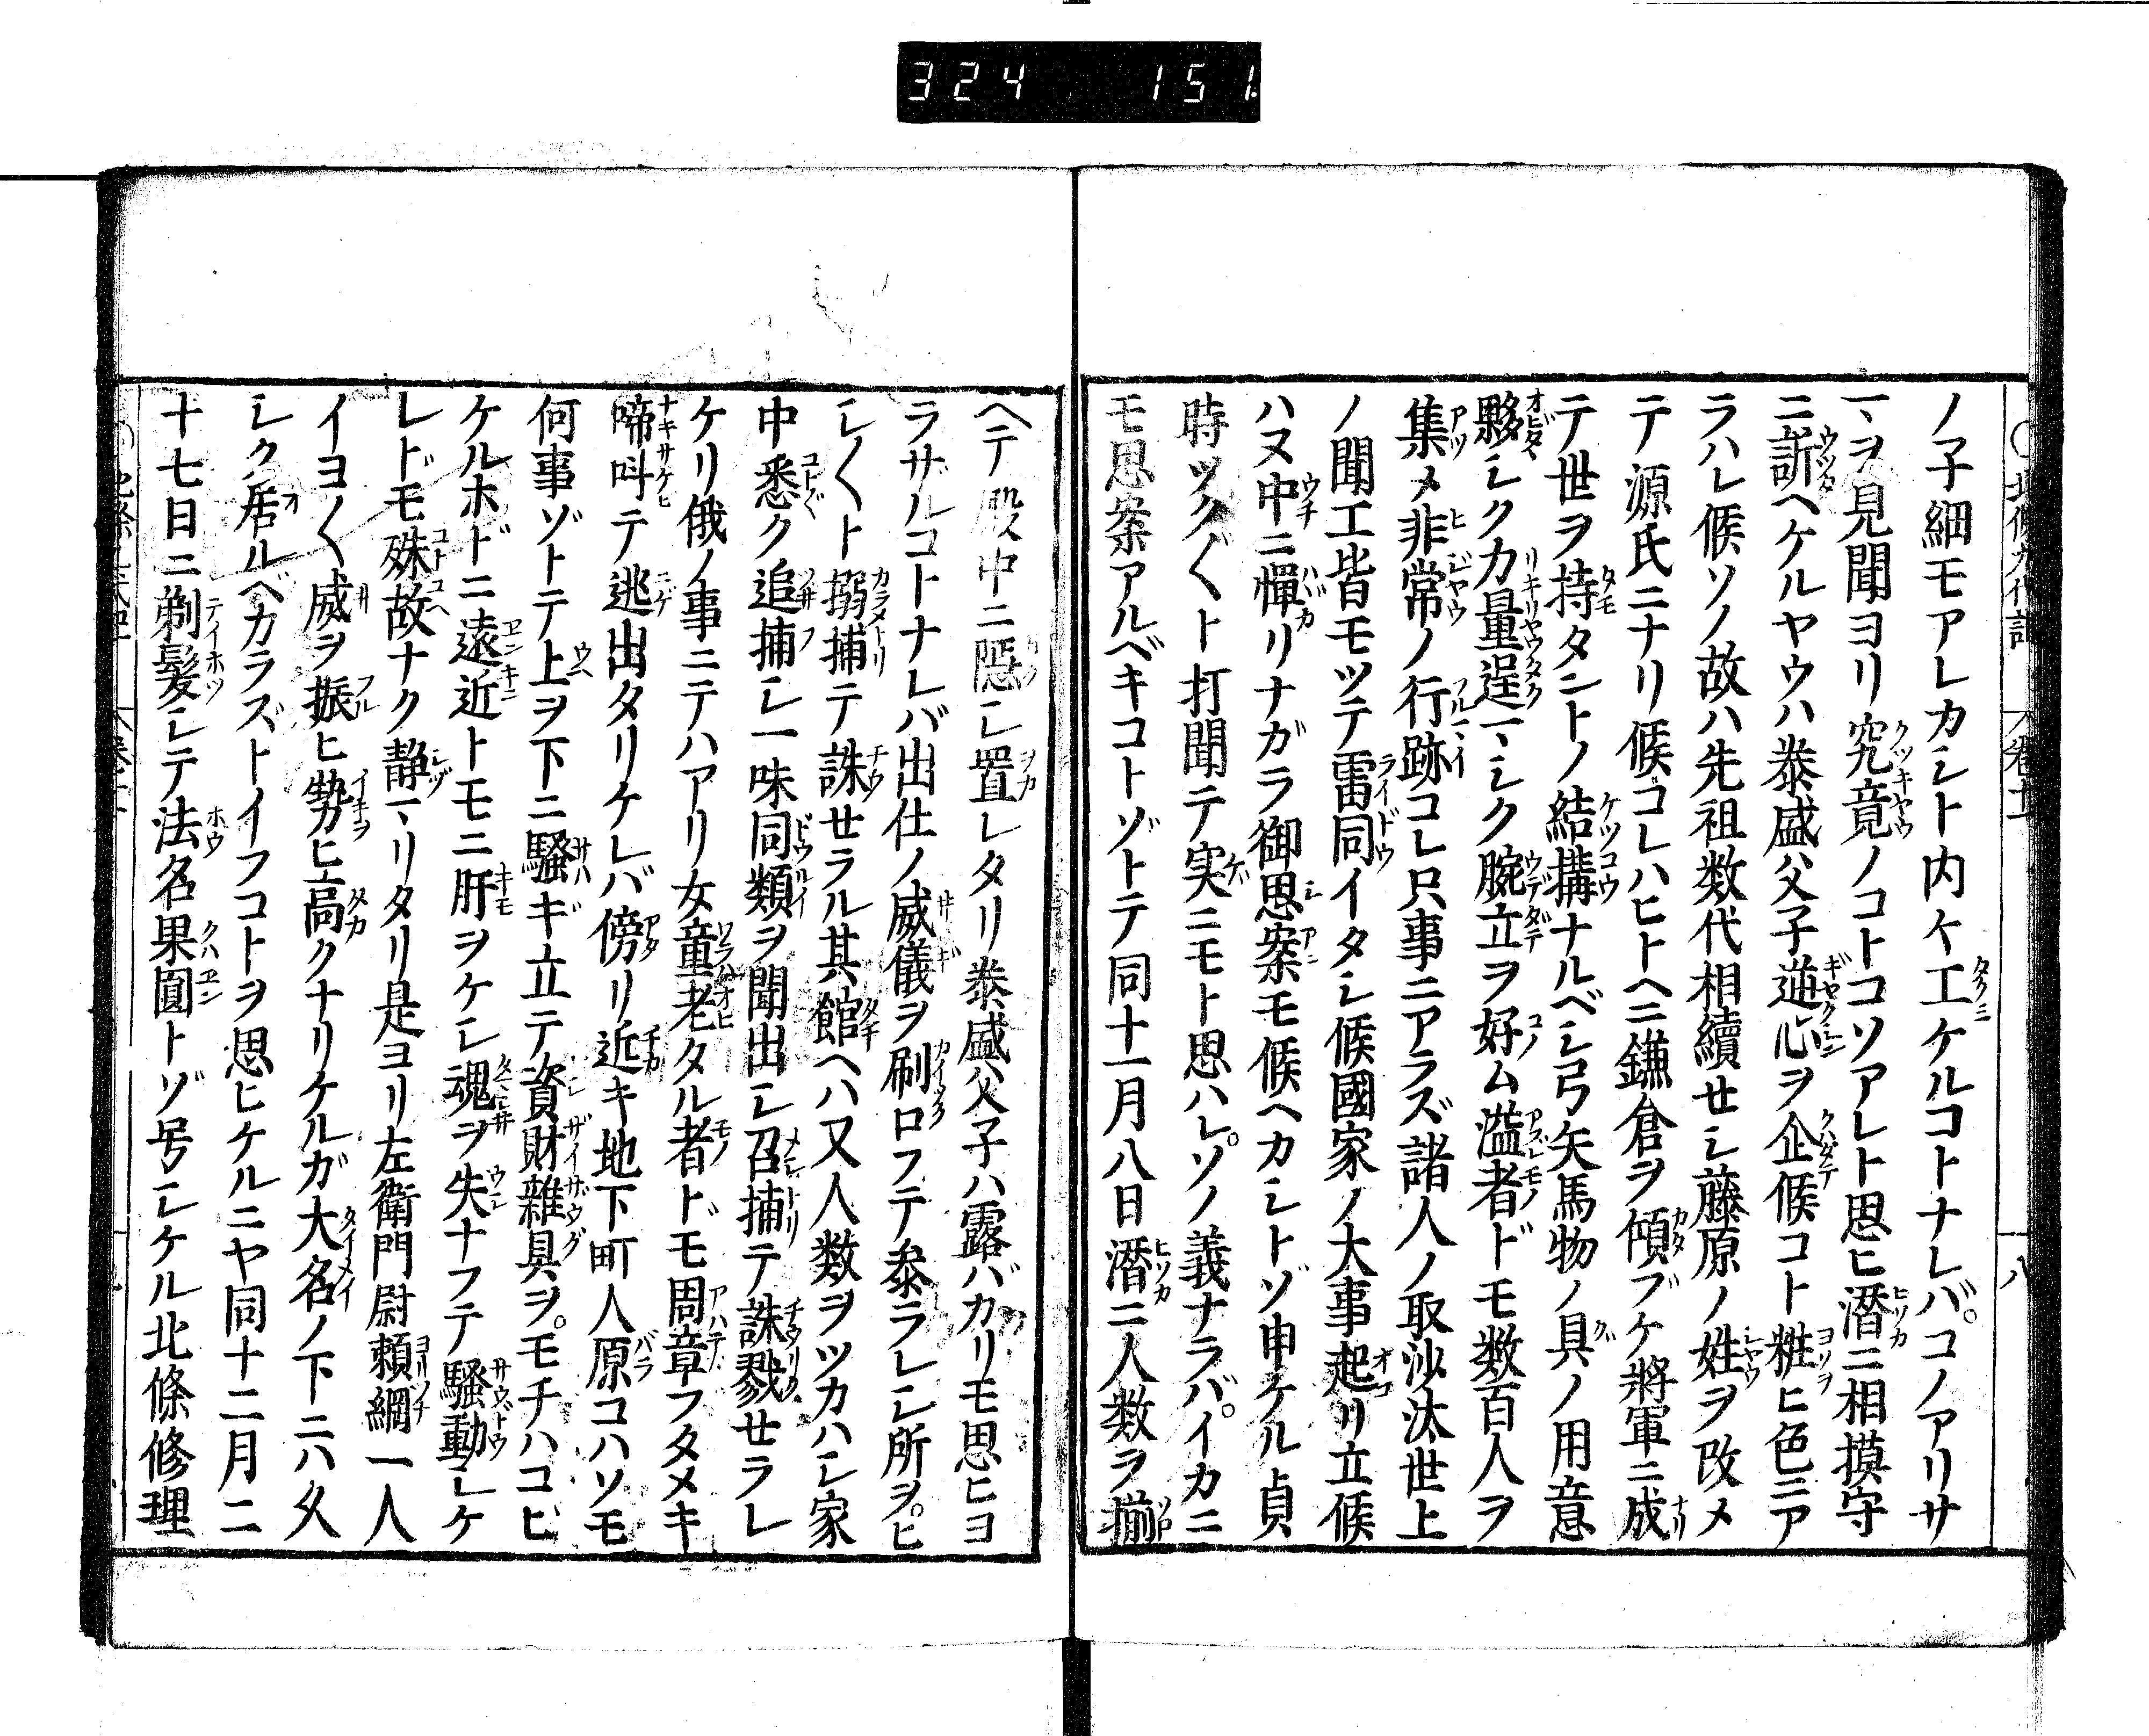 324 151
ノ子細モアレカシト内々工ケルコトナレバ。コノアリサ
マヲ見聞ヨリ究竟ノコトコソアレト思ヒ潜ニ相摸守
ニ訴ヘケルヤウハ泰盛父子逆心ヲ企候コト粧ヒ色ニア
ラハレ候ソノ故ハ先祖数代相續セシ藤原ノ姓ヲ改メ
テ源氏ニナリ候コレハヒトヘニ鎌倉ヲ傾ブケ將軍ニ成
テ世ヲ持タントノ結構ナルベシ弓矢馬物ノ具ノ用意
夥シク力量逞マシク腕立ヲ好ム溢者ドモ数百人ヲ
集メ非常ノ行跡コレ只事ニアラズ諸人ノ取沙汰世上
ノ聞エ皆モツテ雷同イタシ候國家ノ大事起リ立候
ハヌ中ニ憚リナガラ御思案モ候ヘカシトゾ申ケル貞
時ツク〲ト打聞テ実ニモト思ハレ。ソノ義ナラバ。イカニ
モ思案アルベキコトゾトテ同十一月八日潜ニ人数ヲ揃
ヘテ殿中ニ隠シ置レタリ泰盛父子ハ露バカリモ思ヒヨ
ラザルコトナレバ出仕ノ威儀ヲ刷ロフテ参ラレシ所ヲ。ヒ
シ〱ト搦捕テ誅セラル其館ヘハ又人数ヲツカハシ家
中悉ク追捕シ一味同類ヲ聞出シ召捕テ誅戮セラレ
ケリ俄ノ事ニテハアリ女童老タル者ドモ周章フタメキ
啼呌テ逃出タリケレバ傍リ近キ地下町人原コハソモ
何事ゾトテ上ヲ下ニ騒ギ立テ資財雜具ヲ。モチハコビ
ケルホドニ遠近トモニ肝ヲケシ魂ヲ失ナフテ騷動シケ
レドモ殊故ナク静マリタリ是ヨリ左衛門尉頼綱一人
イヨ〱威ヲ振ヒ勢ヒ高クナリケルガ大名ノ下ニハ久
シク居ルベカラズトイフコトヲ思ヒケルニヤ同十二月二
十七日ニ剃髪シテ法名果圓トゾ号シケル北條修理